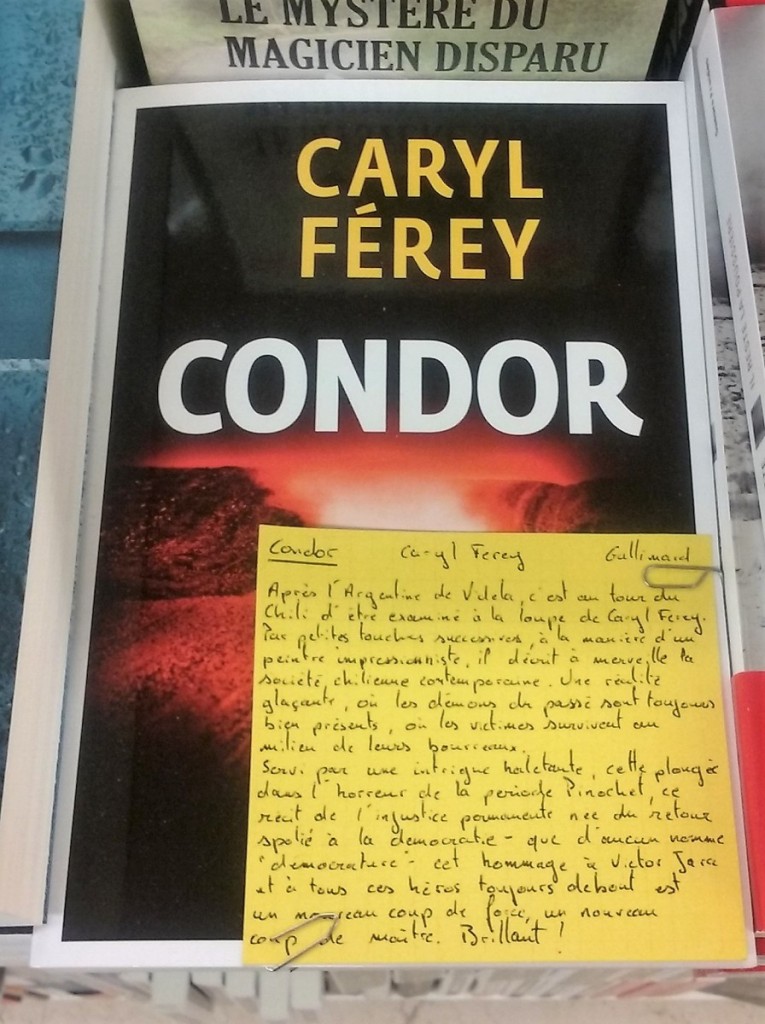 LE MYSTÈRE DU
MAGICIEN DISPARU
CARYL
FÉREY
CONDOR
Condor Caryl Ferey Gallimard
Après l'Argentine de Videla, c'est au tour du
Chili d'être examiné à la loupe de Caryl Ferey.
Par petites touches successives, à la manière d'un
peintre impressionniste, il décrit à merveille la
société chilienne contemporaine. Une réalité
glaçante, où les démons du passé sont toujours
bien présents, où les victimes survivent au
milieu de leurs bourreaux.
Servi par une intrigue haletante, cette plongée
dans l'horreur de la periode Pinochet, ce
recit de l'injustice permanente nee du retour
spolié à la democratie - que d'aucun nomme
"democrature" - cet hommage à Victor Jara
et à tous ces héros toujours debout est
un nouveau coup de force, un nouveau
coup de maître. Brillant !